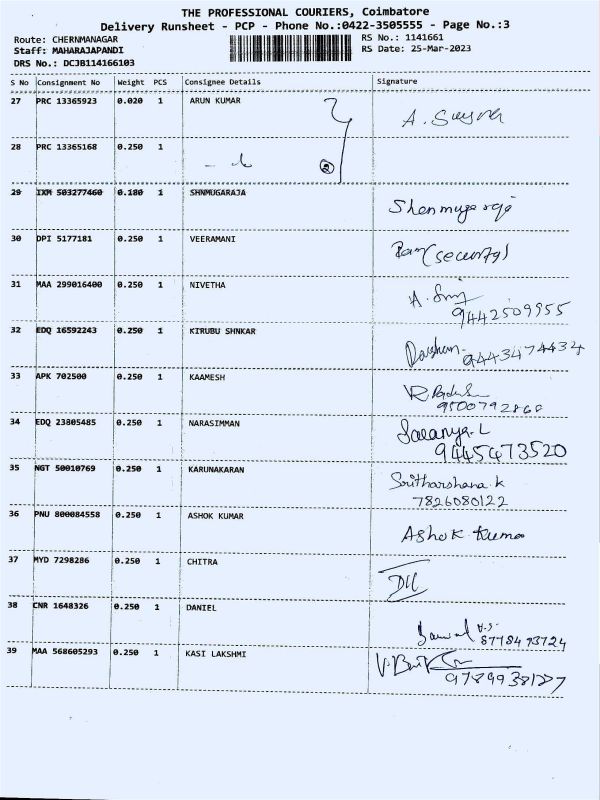 THE PROFESSIONAL COURIERS, Coimbatore
Delivery Runsheet - PCP - Phone No.:0422-3505555 - Page No.:3
Route: CHERNMANAGAR
Staff: MAHARAJAPANDI
DRS No.: DCJB114166103
RS No.: 1141661
RS Date: 25-Mar-2023
S No Consignment No Weight PCS Consignee Details Signature
27 PRC 13365923 0.020 1 ARUN KUMAR A.
28 PRC 13365168 0.250 1
29 IXM 503277460 0.180 1 SHNMUGARAJA Shenmuga raja
30 DPI 5177181 0.250 1 VEERAMANI (security)
31 MAA 299016400 0.250 1 NIVETHA A.
9442509955
32 EDQ 16592243 0.250 1 KIRUBU SHNKAR Darshan. 9443474434
33 APK 702500 0.250 1 KAAMESH R.
9500792868
34 EDQ 23805485 0.250 1 NARASIMMAN Saranya.L
9445473520
35 NGT 50010769 0.250 1 KARUNAKARAN Sritharshana.k
7826080122
36 PNU 800084558 0.250 1 ASHOK KUMAR Ashok Kumar
37 MYD 7298286 0.250 1 CHITRA
38 CNR 1648326 0.250 1 DANIEL
8778493724
39 MAA 568605293 0.250 1 KASI LAKSHMI V.